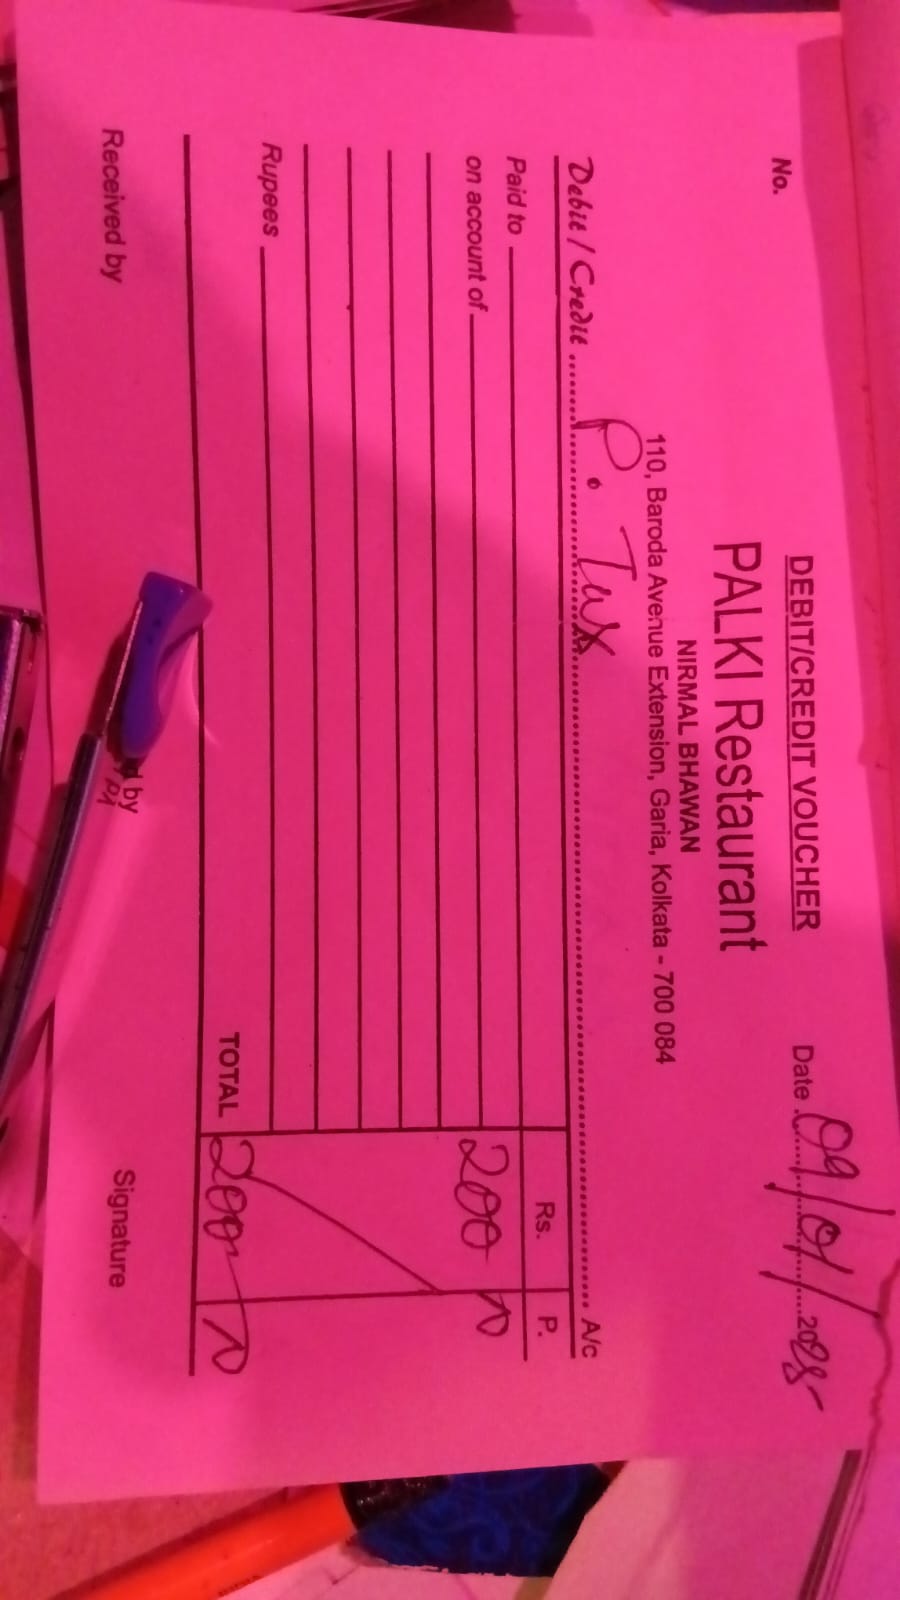 DEBIT/CREDIT VOUCHER
No.
Date 09/01/2025
PALKI Restaurant
NIRMAL BHAWAN
110, Baroda Avenue Extension, Garia, Kolkata - 700 084
Debit / Credit P. Tax A/c
Rs. P.
Paid to
on account of 200
Rupees
TOTAL 200
Received by
d by
Signature